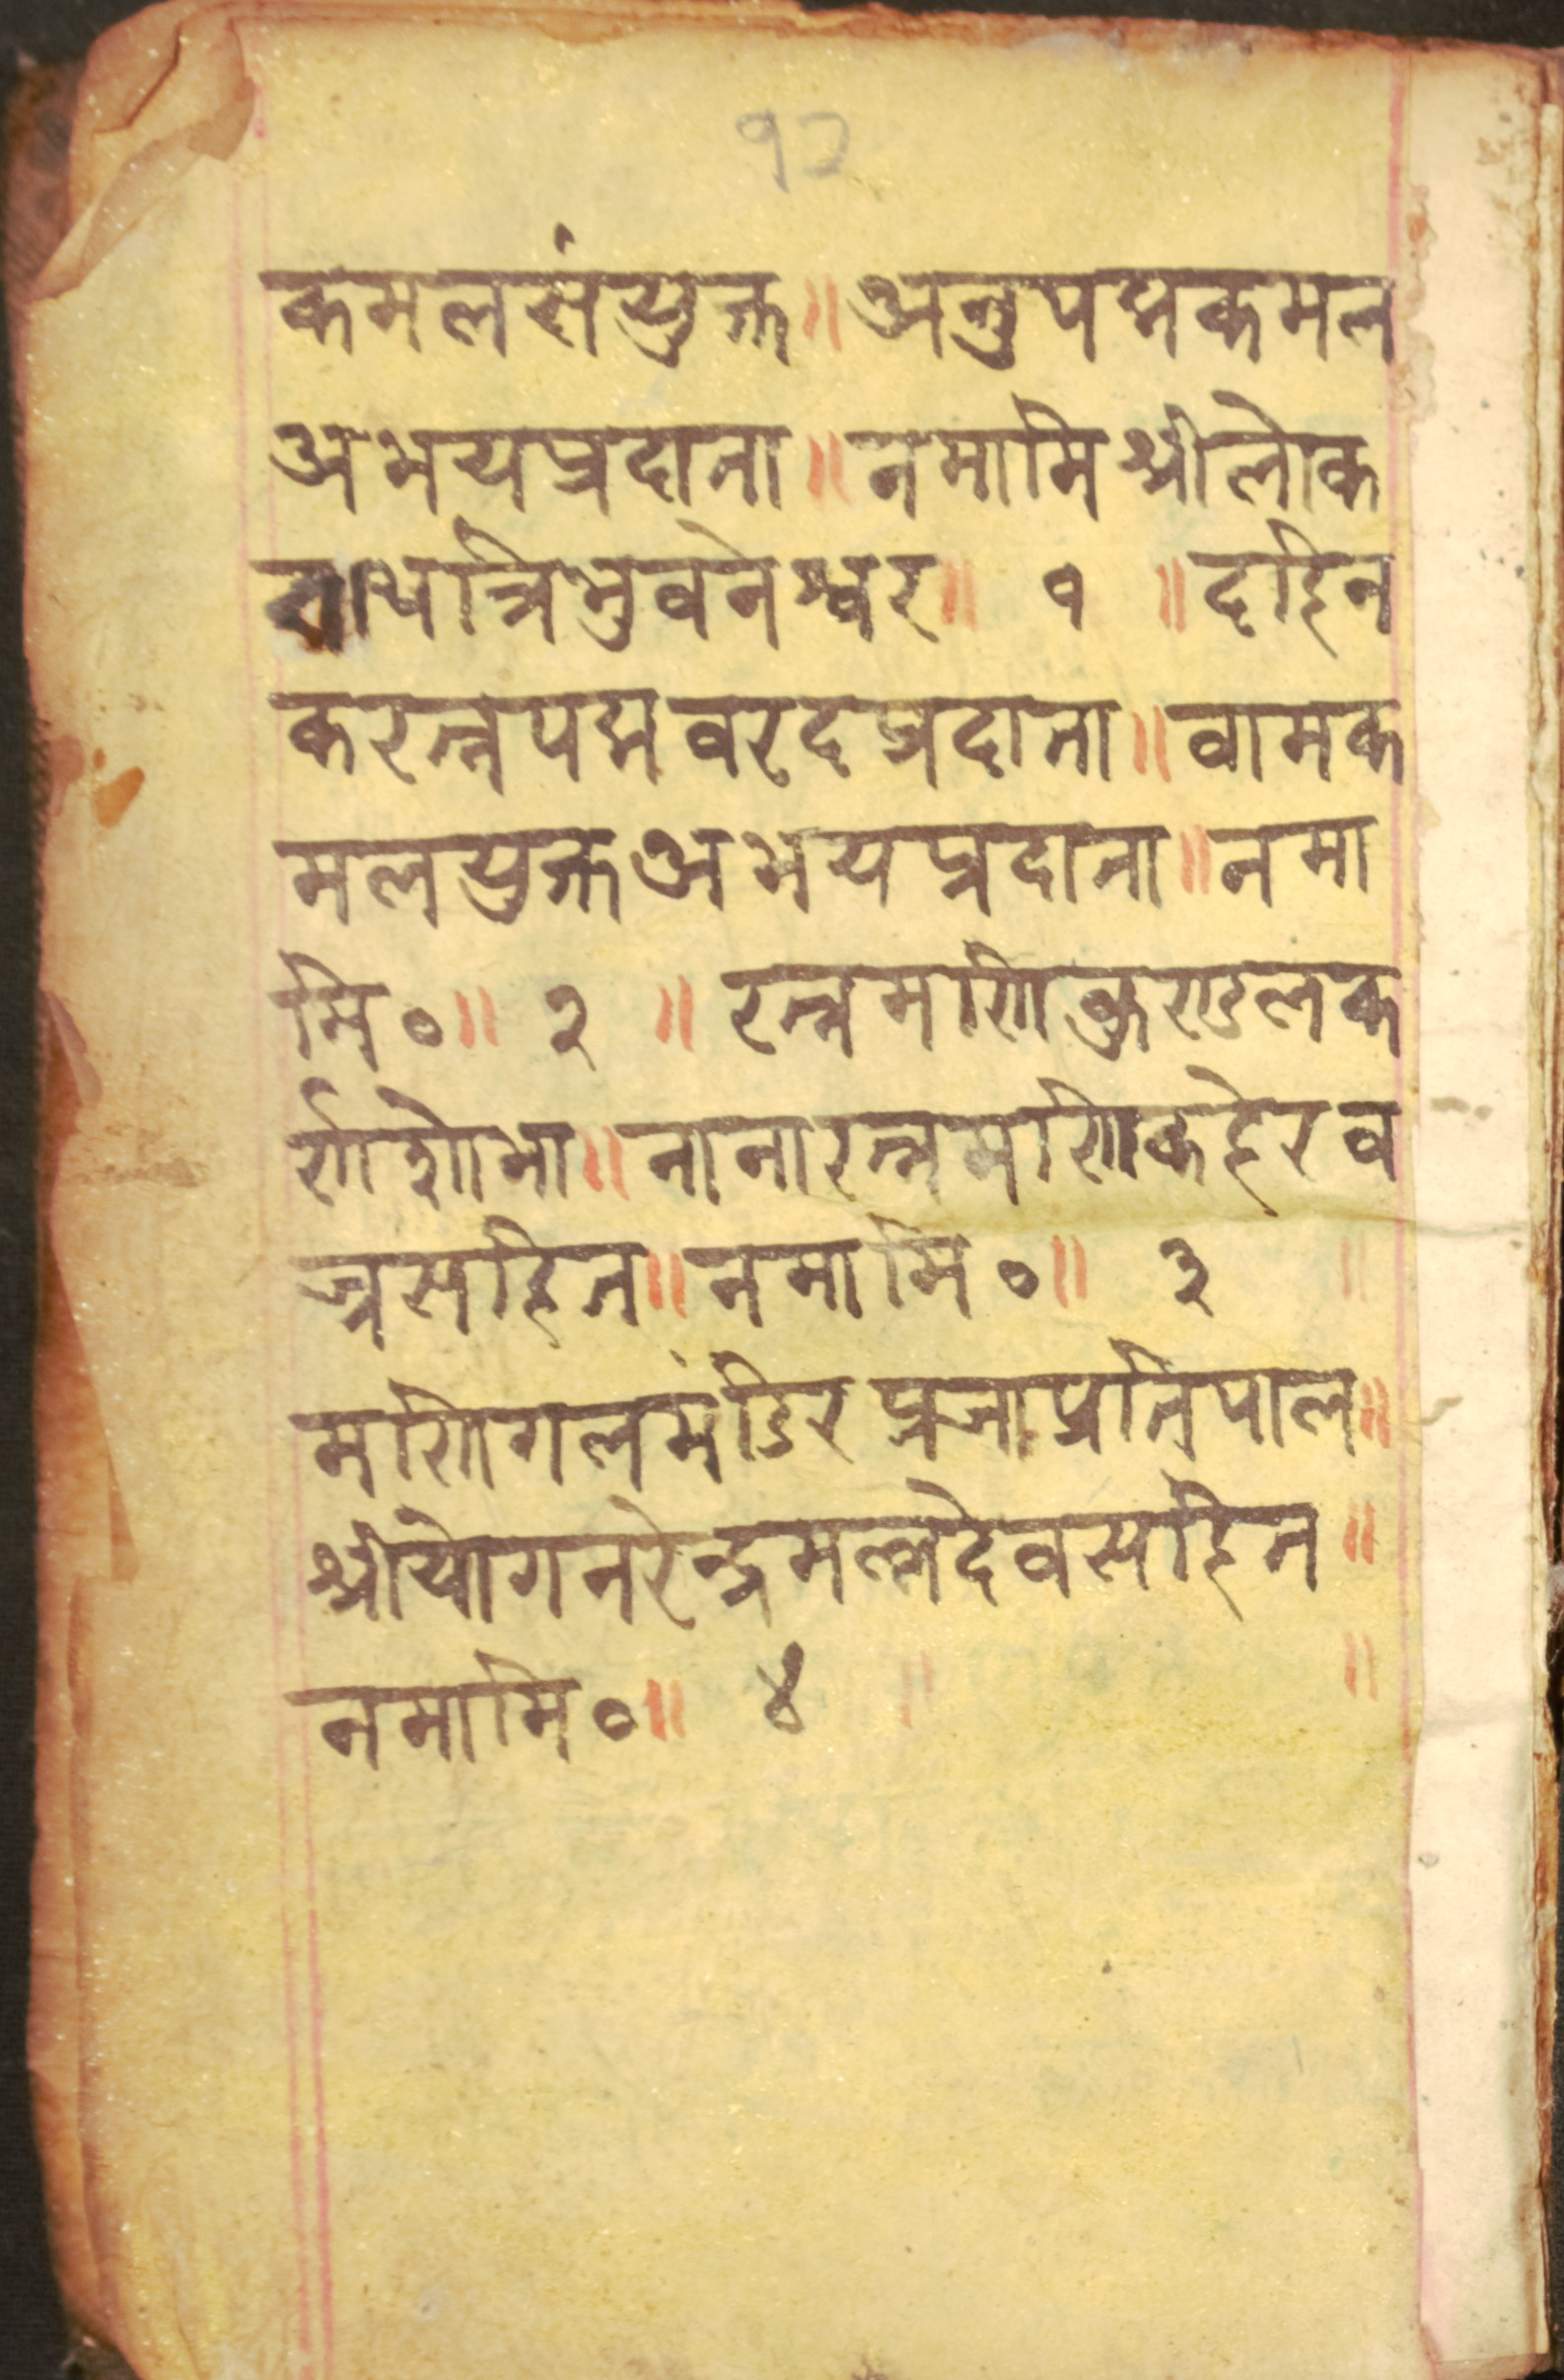 १२
कमलसंयुक्त॥अनुपद्मकमल
अभयप्रदाना॥नमामिश्रीलोक
नाथत्रिभुवनेश्वर॥ १ ॥दहिन
करत्नपद्मवरदप्रदाना॥वामक
मलयुक्तअभयप्रदाना॥नमा
मि०॥ २ ॥रत्नमणिकुण्डलक
र्णशोभा॥नानारत्नमणिकहेरव
ज्रसहित॥नमामि०॥ ३ ॥
मणिगलमंडिरप्रजाप्रतिपाल॥
श्रीयोगनरेन्द्रमल्लदेवसहित॥
नमामि०॥ ४ ॥ ॥